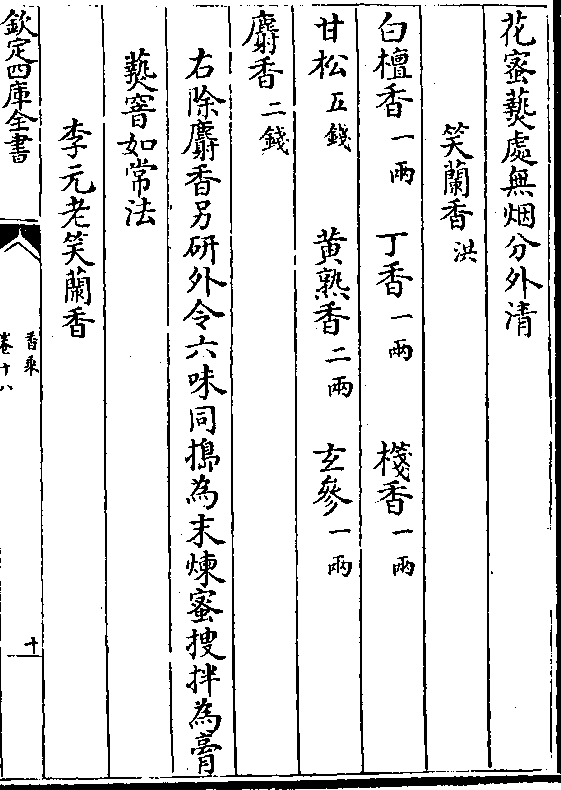 花蜜爇處無烟分外清
笑蘭香洪
白檀香一兩 丁香一兩 棧香一兩
甘松五錢 黃熟香二兩 玄參一兩
麝香二錢
右除麝香另研外令六味同搗為末煉蜜搜拌為膏
爇窨如常法
李元老笑蘭香
欽定四庫全書
香乘
卷十八
十